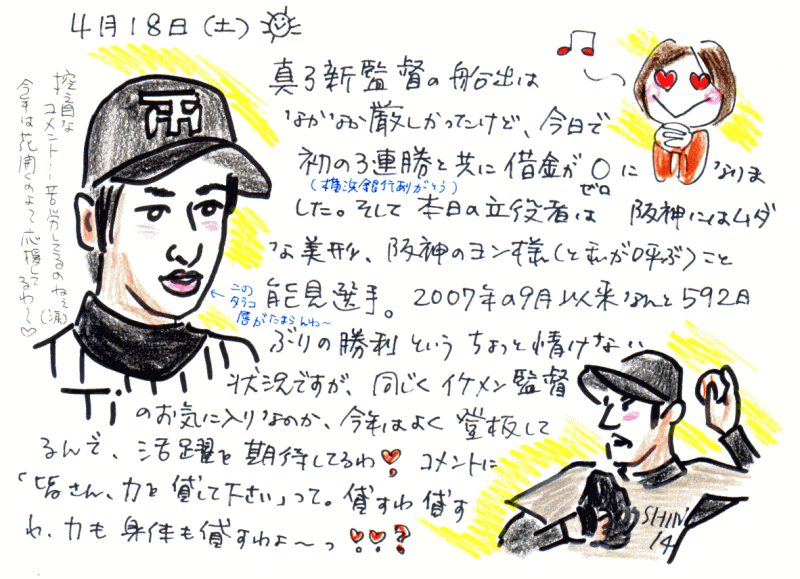 4月18日(土)
真弓新監督の船出は
なかなか厳しかったけど、今日で
初の3連勝と共に借金が0になりま
ゼロ
(横浜銀行ありがとう)
した。そして本日の立役者は 阪神にはムダ
な美形、阪神のヨン様(と私が呼ぶ)こと
能見選手。2007年の9月以来なんと592日
ぶりの勝利というちょっと情けない
状況ですが、同じくイケメン監督
のお気に入りなのか、今年はよく登板して
るんで、活躍を期待してるわ
コメントに
「皆さん、力を貸して下さい」って。貸すわ貸す
わ、力も身体も貸すわよ〜っ
控え目な
コメント…苦労してるのねぇ(涙)
今年は花開くのよって応援して
るわ〜♡
←この
タラコ
唇がたまらんわ〜
Ti
SHIN
14